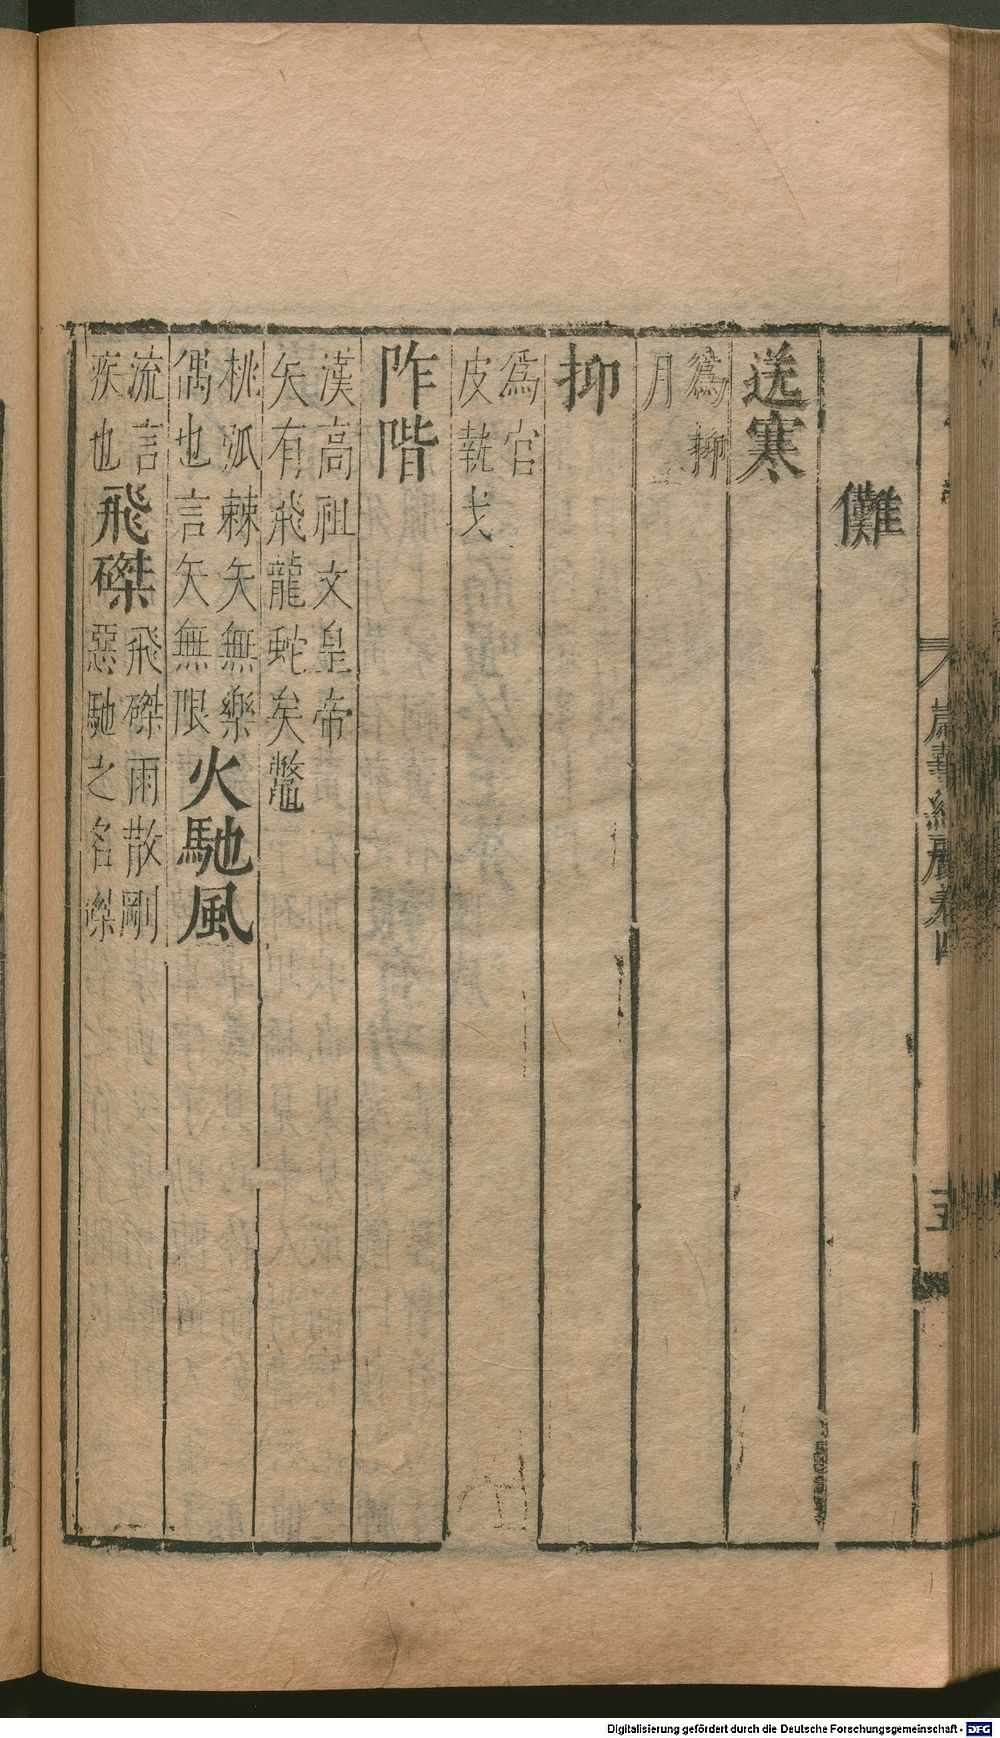 儺
送寒
為抑
月
抑
為官
皮執戈
阼階
漢高祖文皇帝
矢有飛龍蛇矣鼈
桃弧棘矢無樂
偶也言矢無限
火馳風
流言
疾也
飛磔
飛磔雨散剛
惡馳之名磔
Digitalisierung gefördert durch die Deutsche Forschungsgemeinschaft - DFG